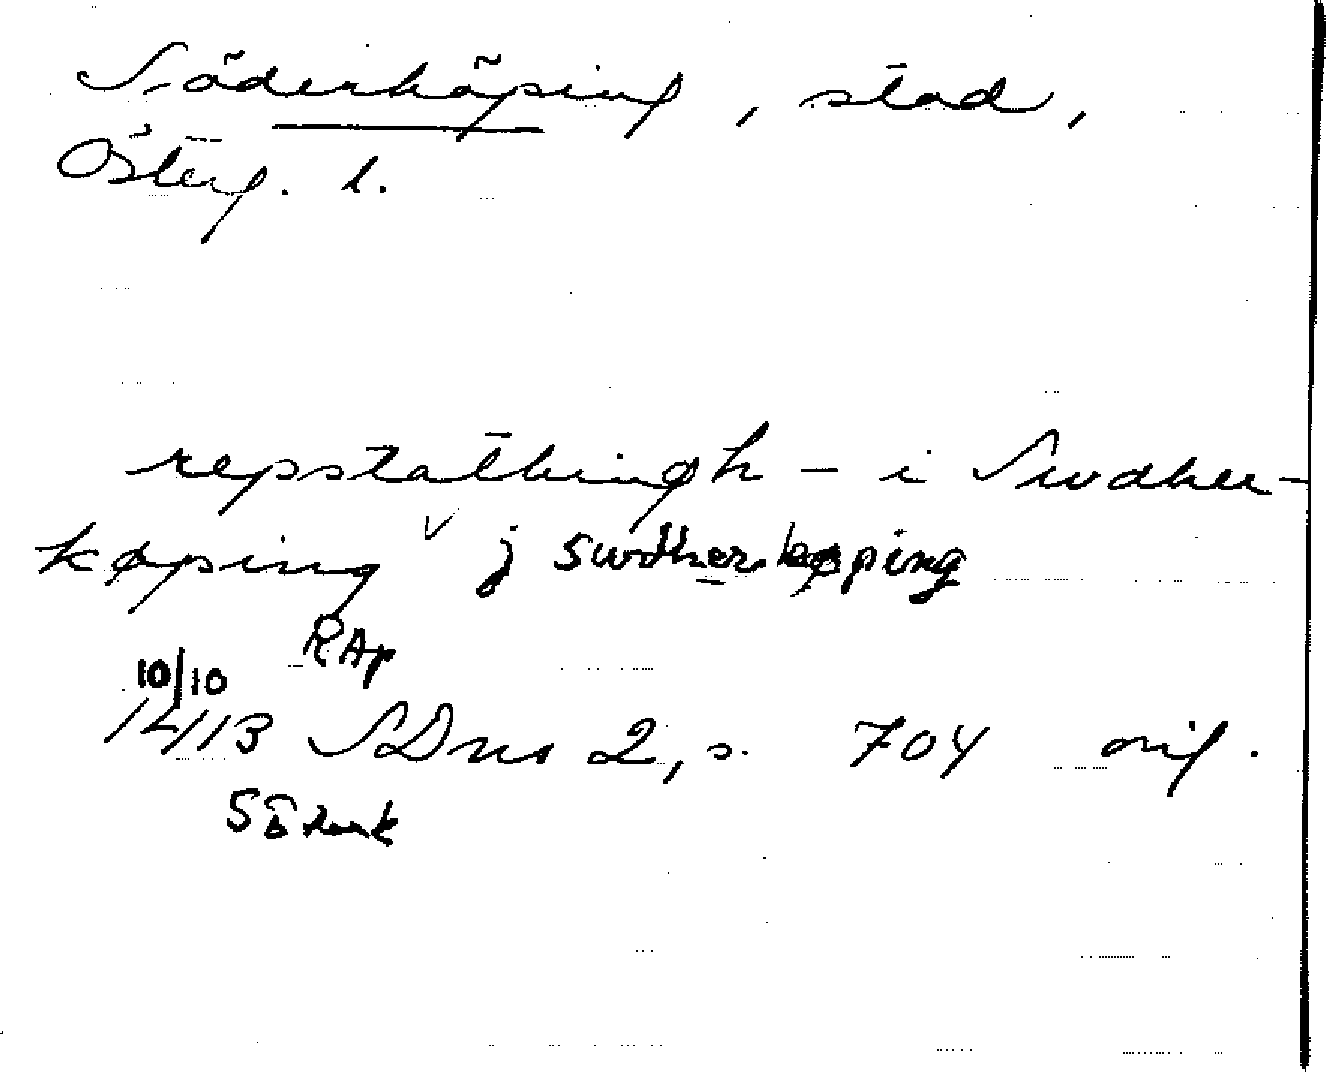 Söderköping, stad,
Österg. l.
repstathingh – i Swdher-
køping j swdherkøping
RAp
10/10
14/13 SDns 2, s. 704 orig.
Söderk